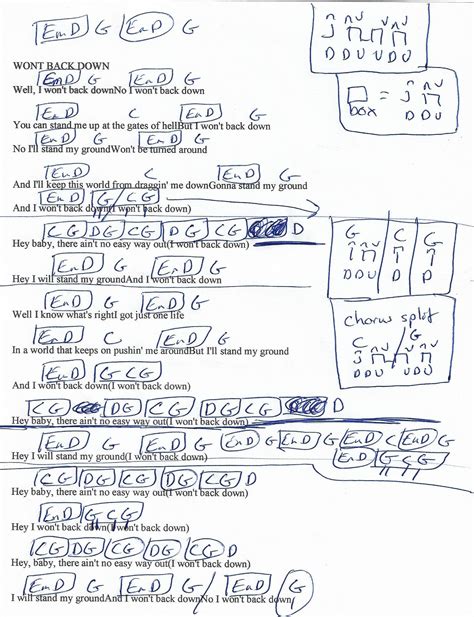 Em D G Em D G
J
D D U U D U
box = J
D D U
WONT BACK DOWN
Em D G Em D G
Well, I won't back downNo I won't back down
Em D C Em D G
You can stand me up at the gates of hellBut I won't back down
Em D G Em D G
No I'll stand my groundWon't be turned around
Em D C Em D G
And I'll keep this world from draggin' me downGonna stand my ground
Em D G / C G
And I won't back down(I won't back down)
C G D G C G D G C G D
Hey baby, there ain't no easy way out(I won't back down)
G C G
D D U D D D U
Em D G Em D G
Hey I will stand my groundAnd I won't back down
Em D G Em D G
Well I know what's right got just one life
chorus split
C / G
D D U D U
Em D C Em D G
In a world that keeps on pushin' me aroundBut I'll stand my ground
Em D G C G
And I won't back down(I won't back down)
C G D G C G D G C G D
Hey baby, there ain't no easy way out(I won't back down)
Em D G Em D G Em D G Em D G Em D C Em D G
Hey I will stand my ground(I won't back down)
Em D G C G
C G D G C G D G C G D
Hey baby, there ain't no easy way out(I won't back down)
Em D G C G
Hey I won't back down(I won't back down)
C G D G C G D G C G D
Hey, baby, there ain't no easy way out(I won't back down)
Em D G Em D G / Em D / G
I will stand my groundAnd I won't back downNo I won't back down